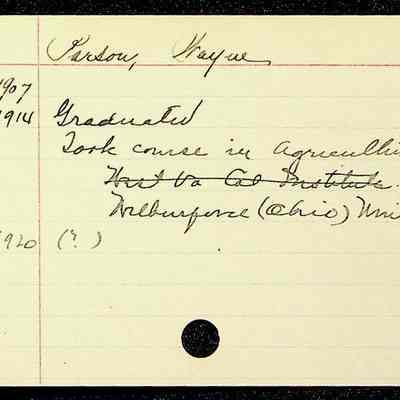 Parson, Wayne
1907
1914 Graduated
Took course in Agricultu
West Va Col Institute.
Wilberforce (Ohio) Uni
1920 (?)